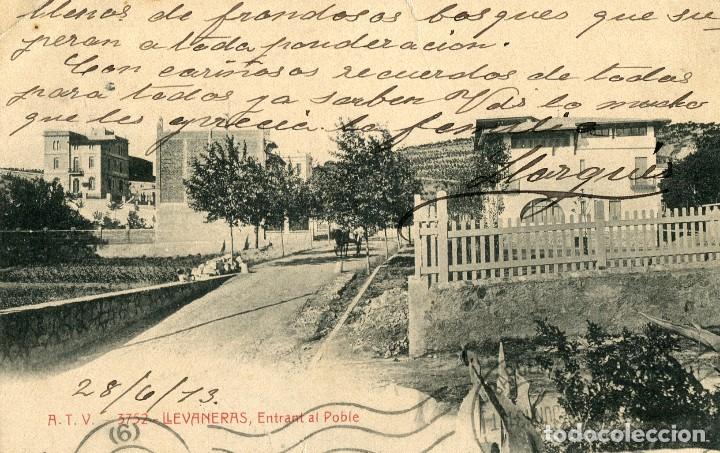 llenas de frondosos bosques que su-
peran a toda ponderacion.
Con cariñosos recuerdos de todas
para todos ya saben Vds lo mucho
que les aprecia la familia
Marqués
28/6/13.
A.T.V. 3752 - LLEVANERAS, Entrant al Poble
(6)
todocoleccion.net